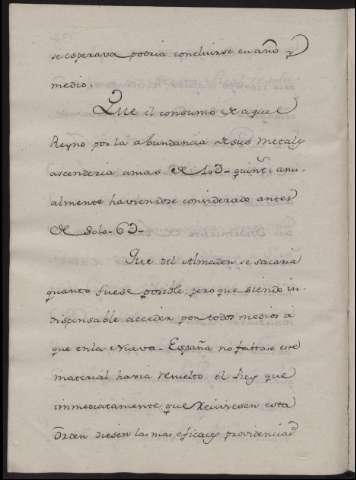 se esperava podria concluirse en año y
medio.
Que el consumo de aquel
Reyno por la abundancia de sus metales
ascenderia a mas de 10D quint. anu-
almente haviendose considerado antes
de solo 6D
Que del Almaden se sacaria
quanto fuese posible, pero que siendo in-
dispensable acceder por todos medios a
que en la Nueva España no faltase este
material havia resuelto el Rey que
immediatamente que reciviesen esta
Orden diesen las mas eficaces providencias